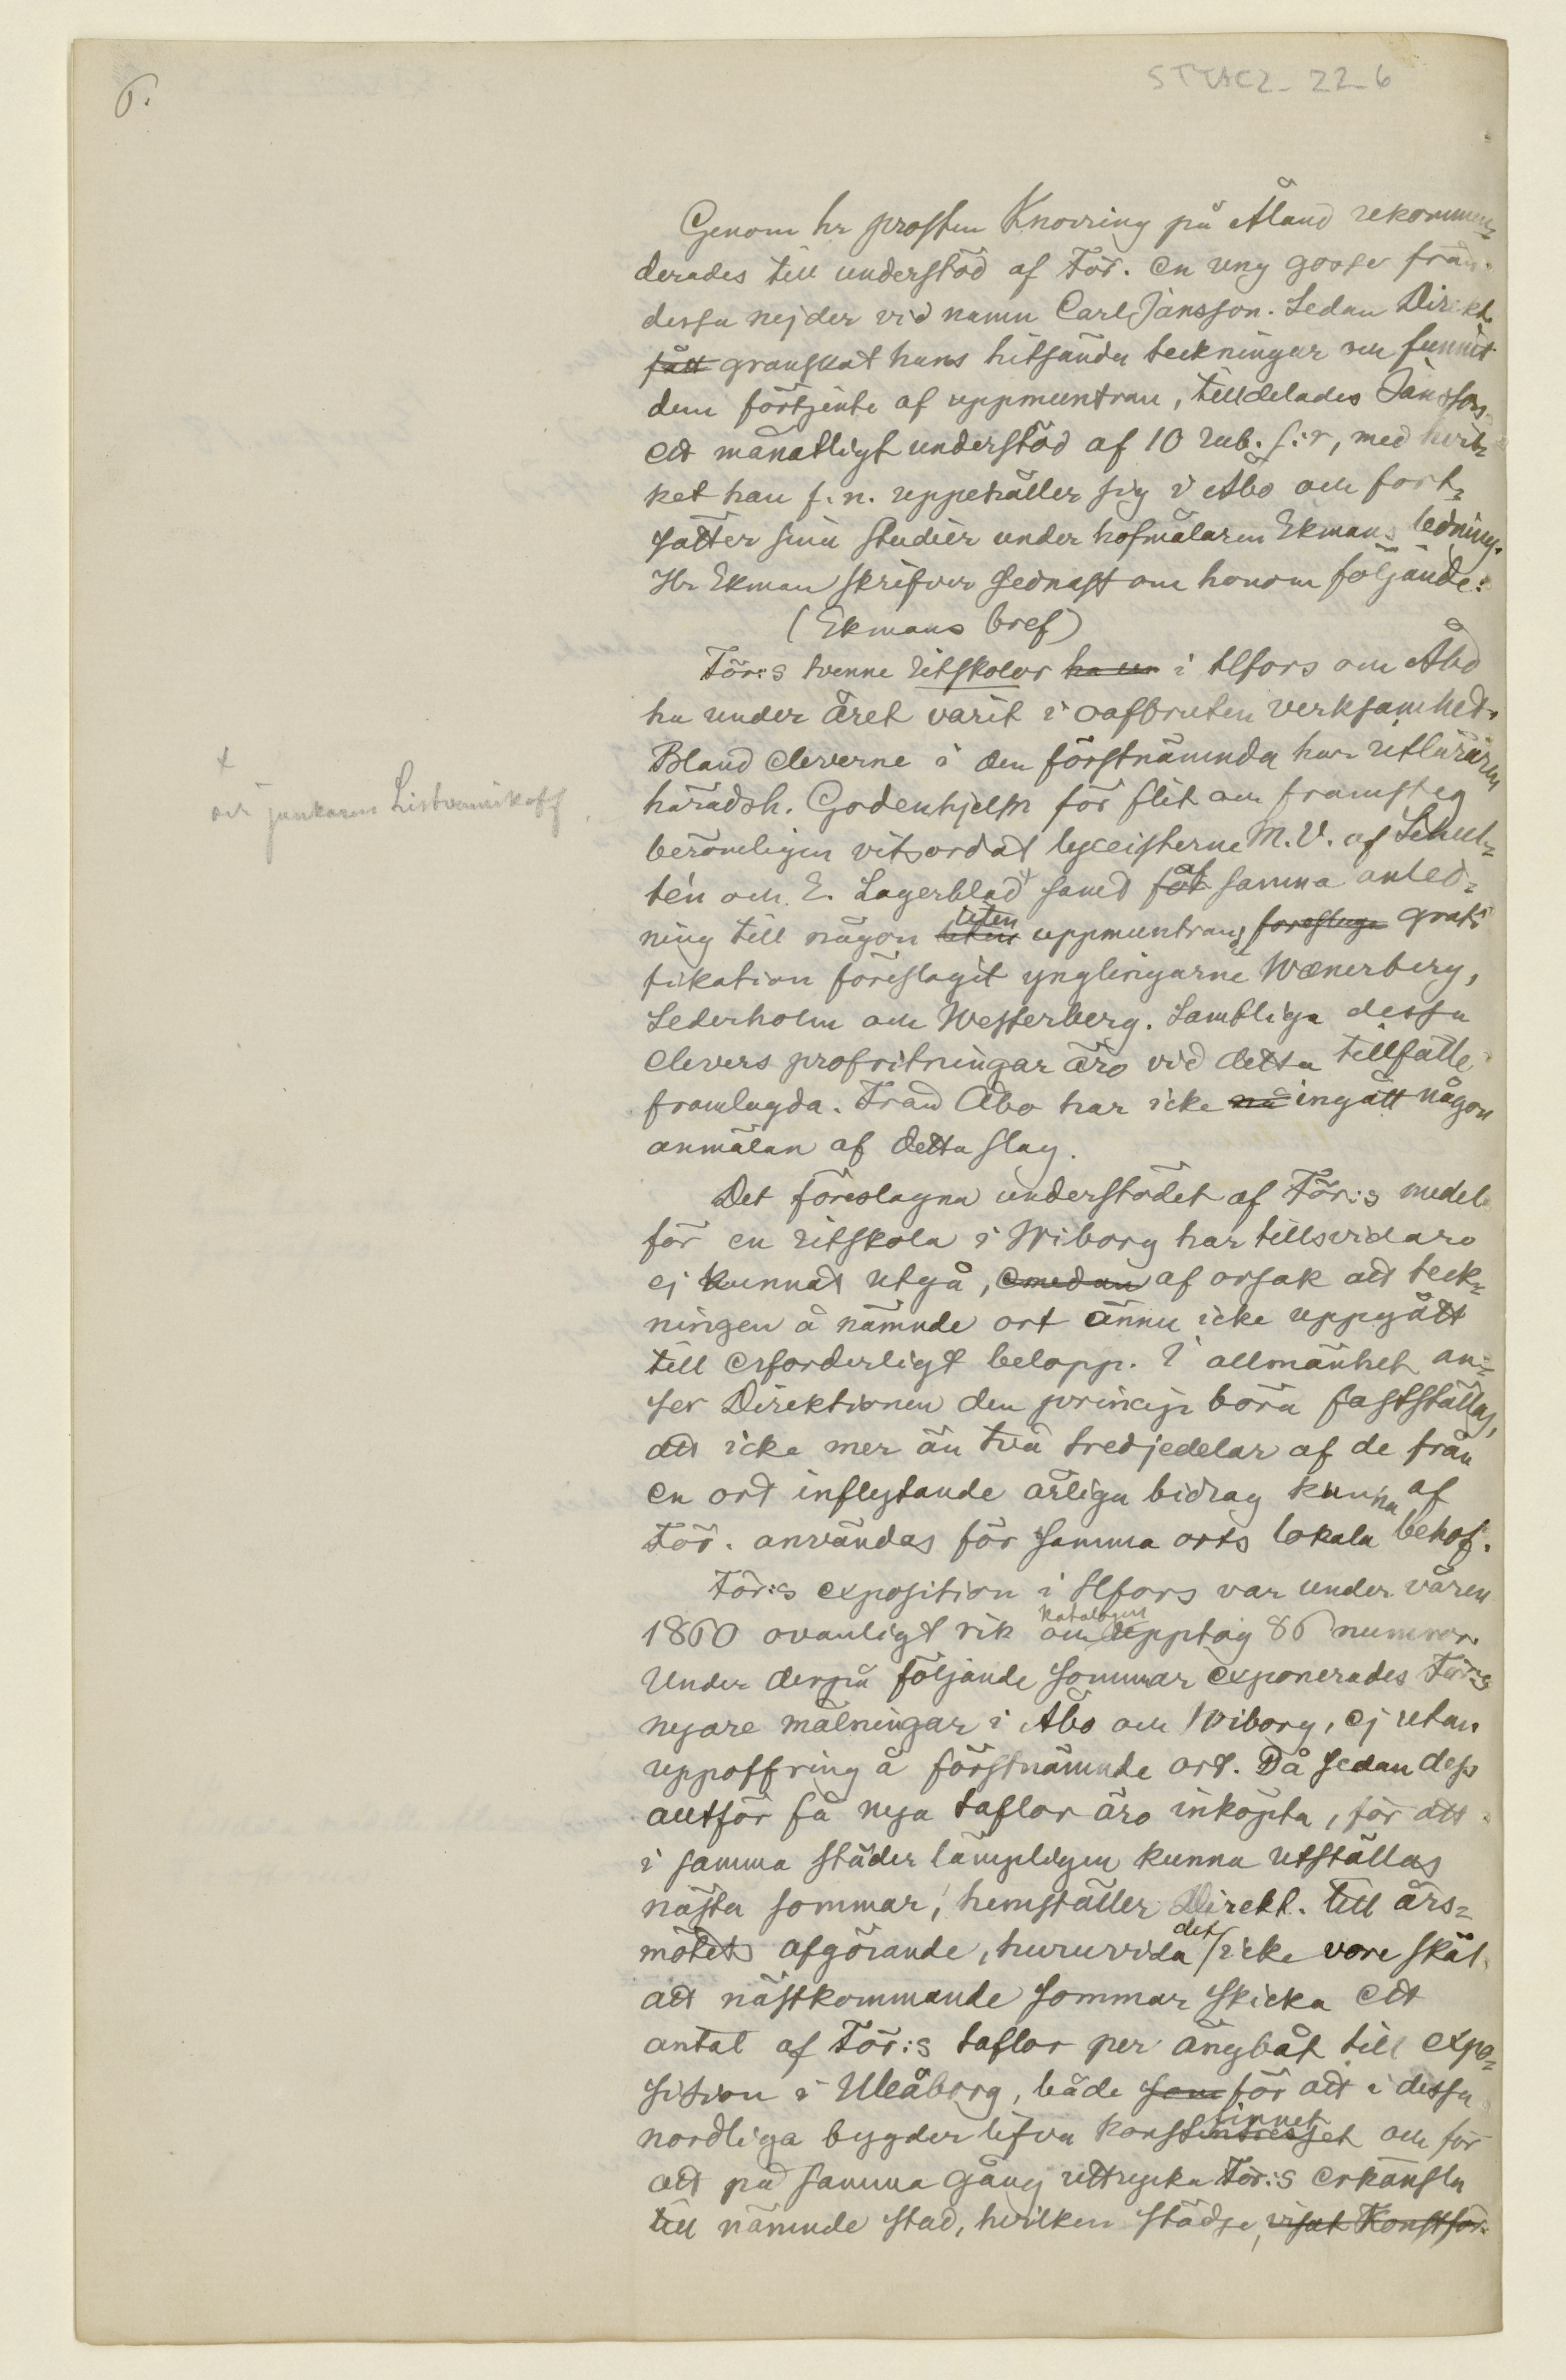 6.
STTAC2_22_6
Genom hr prosten Knorring på Åland rekommen=
derades till understöd af För. en ung gosse från
dessa nejder vid namn Carl Jansson. Sedan Direkt.
fått granskat hans hitsända teckningar och funnit
dem förtjente af uppmuntran, tilldelades Jansson
ett månatligt understöd af 10 rub. s:r, med hvil=
ket han f. n. uppehåller sig i Åbo och fort=
sätter sina studier under hofmålaren Ekmans ledning.
Hr Ekman skrifver sednast om honom följande:
(Ekmans bref)
För:s tvenne ritskolor i Hfors och Åbo
ha under året varit i oafbruten verksamhet.
Bland eleverne i den förstnämnda har ritläraren
häradsh. Godenhjelm för flit och framsteg
berömligen vitsordat lyceisterne M. V. af Schul=
tén och E. Lagerblad + samt för af samma anled=
ning till någon liten uppmuntran, föreslaga grati
fikation föreslagit ynglingarne Wænerberg,
Lederholm och Westerberg. Samtliga dessa
elevers profritningar äro vid detta tillfälle
framlagda. Från Åbo har icke ingått någon
anmälan af detta slag.
+
och junkaren Listvennikoff
Det föreslagna understödet af För:s medel
för en ritskola i Wiborg har tillsvidare
ej kunnat utgå, emedan af orsak att teck=
ningen å nämnde ort ännu icke uppgått
till erforderligt belopp. I allmänhet an=
ser Direktionen den princip böra fastställas,
att icke mer än två tredjedelar af de från
en ort inflytande årliga bidrag kunna af
För. användas för samma orts lokala behof.
För:s exposition i Hfors var under våren
1860 ovanligt rik och katalogen upptog 86 nummer.
Under derpå följande sommar exponerades För:s
nyare målningar i Åbo och Wiborg, ej utan
uppoffring å förstnämnde ort. Då sedan dess
alltför få nya taflor äro inköpta, för att
i samma städer lämpligen kunna utställas
nästa sommar, hemställer Direkt. till års=
mötets afgörande, huruvida det icke vore skäl
att nästkommande sommar skicka ett
antal af För:s taflor per ångbåt till expo=
sition i Uleåborg, både som för att i dessa
nordliga bygder lifva konstintresset sinnet och för
att på samma gång uttrycka För:s erkänsla
till nämnde stad, hvilken städse, visat Konstför.